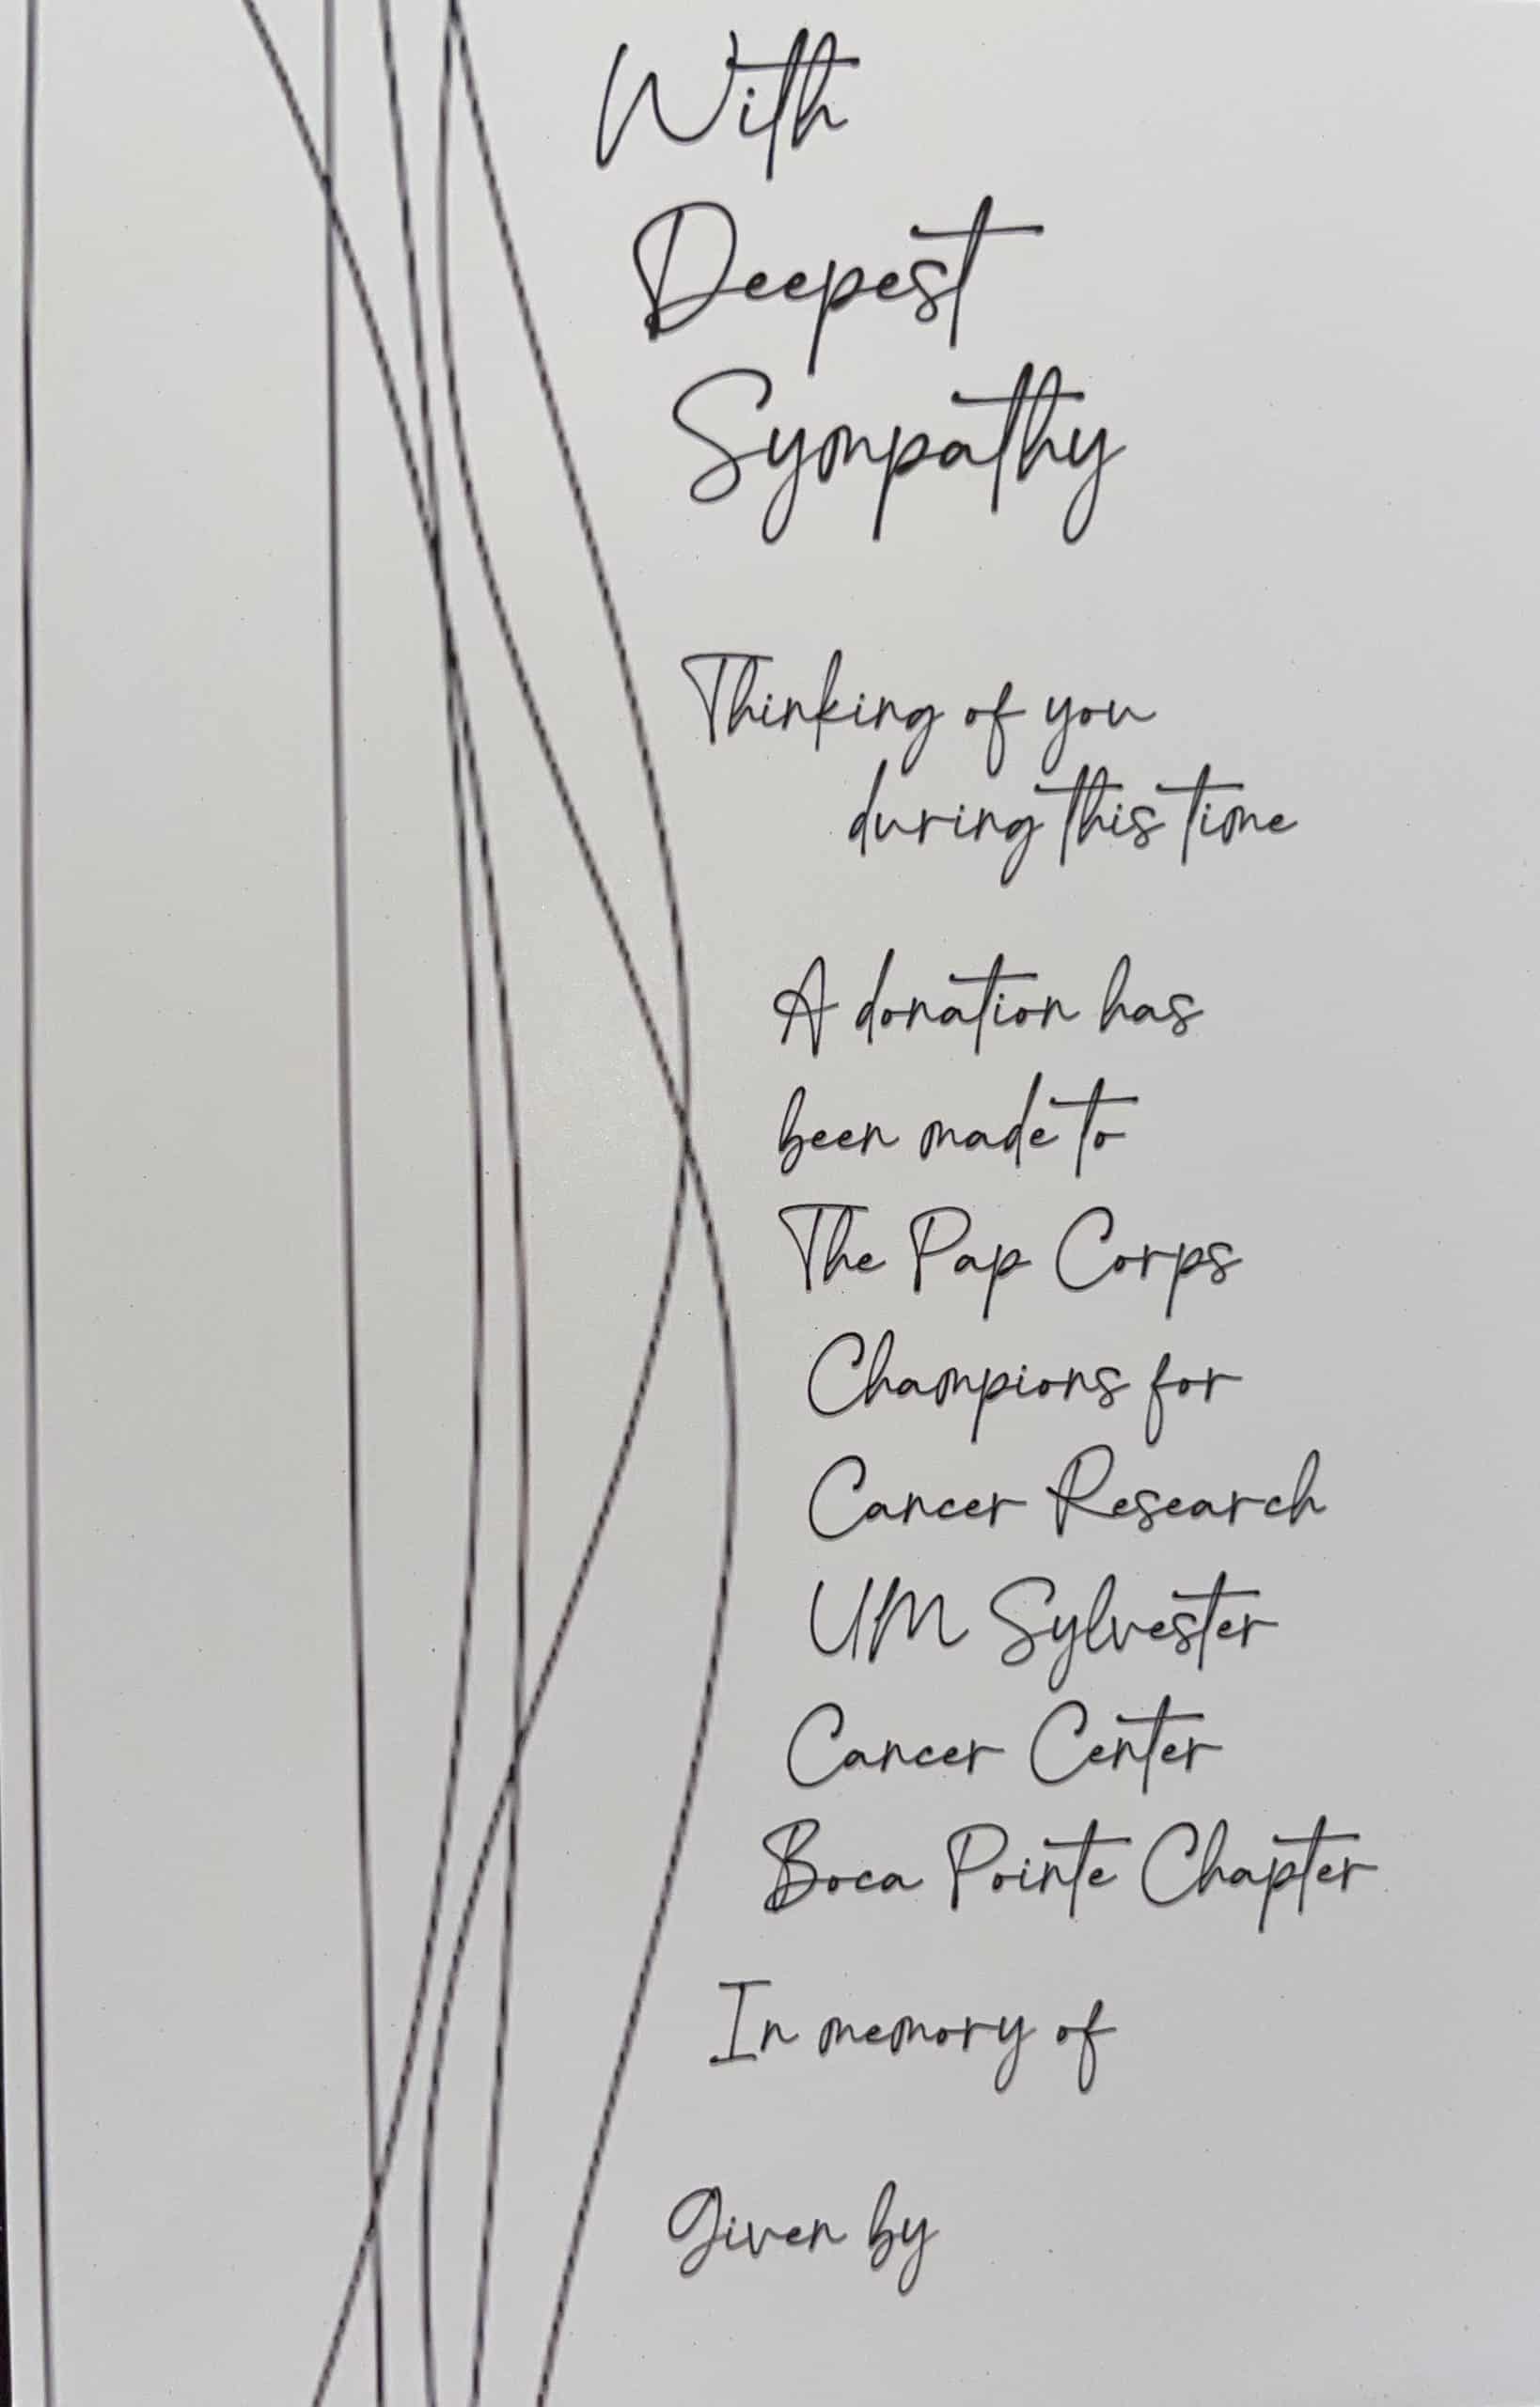 With
Deepest
Sympathy
Thinking of you
during this time
A donation has
been made to
The Pap Corps
Champions for
Cancer Research
UM Sylvester
Cancer Center
Boca Pointe Chapter
In memory of
Given by